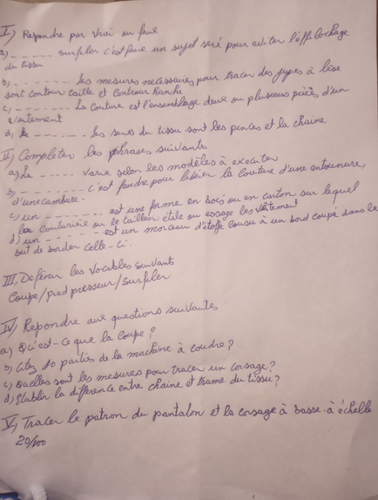 I) Repondre par vrai ou faux
a) ------ surfiler c'est faire un surjet seré pour eviter l'effilochage
du tissu
b) ------- les mesures necessaires pour tracer des jupes à lisse
sont contour taille et contour hanche
c) ------- La couture est l'ensemblage deux ou plusieurs pièces d'un
vetement
d) ------- les sens du tissu sont les pinces et la chaine
II) Completer les phrases suivantes
a) La ----- varie selon les modèles à executer
b) --------- c'est fendre pour libérer la couture d'une entournure,
d'une cambure.
c) un --------- est une forme en bois ou en carton sur lequel
la couturière ou le tailleur étale ou essage les vêtement
d) un -------- est un morceau d'étoffe cousu à un bord coupé dans le
but de border celle-ci.
III. Definir les vocables suivant
Coupe/pied presseur/surfiler
IV) Repondre aux questions suivantes
a) Qu'est-ce que la coupe?
b) Citez 10 parties de la machine à coudre?
c) Quelles sont les mesures pour tracer un corsage?
d) Etablir la différence entre chaine et trame du tissu?
V) Tracer le patron du pantalon et la corsage à basse à échelle
20/100